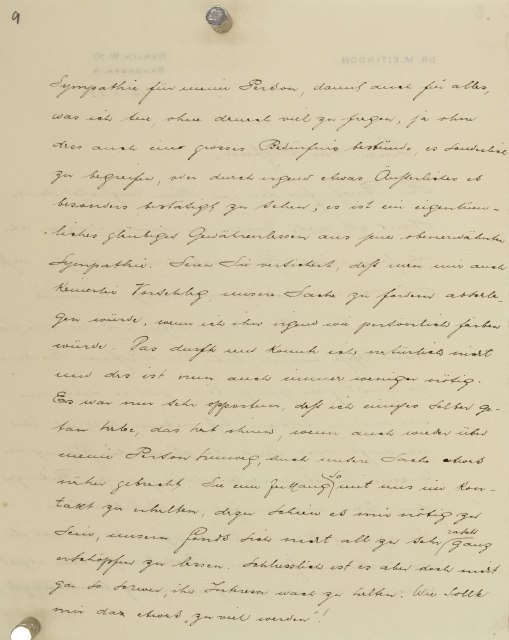 9
Sympathie für meine Person, damit auch für alles,
was ich tue, ohne danach viel zu fragen, ja ohne
dass auch ein grosses Bedürfnis bestünde, es sonderlich
zu begreifen, oder durch irgend etwas Äusserliches es
besonders bestätigt zu sehen; es ist ein eigentüm-
liches gläubiges Gewährenlassen aus jener obenerwähnten
Sympathie. Seien Sie versichert, daß man mir auch
keinerlei Vorschlag, unsere Sache zu fördern abschla-
gen würde, wenn ich ihn irgend wie persönlich färben
würde. Das durft und konnt ich natürlich nicht
und das ist nun auch immer weniger nötig.
Es war nun sehr opportun, daß ich einiges selber ge-
tan habe, das hat ihnen, wenn auch wieder über
meine Person hinweg, auch unsere Sache etwas
näher gebracht. Sie eine Zeitlang so mit uns in Kon-
takt zu erhalten, dazu schien es mir nötig zu
sein, unseren Fonds sich nicht all zu sehr rasch ganz
erschöpfen zu lassen. Schliesslich ist es aber doch nicht
gar so schwer, ihr Interesse wach zu halten. Wie sollte
mir dazu etwas zu viel werden!!
DR. M. EITINGON
BERLIN W. 10